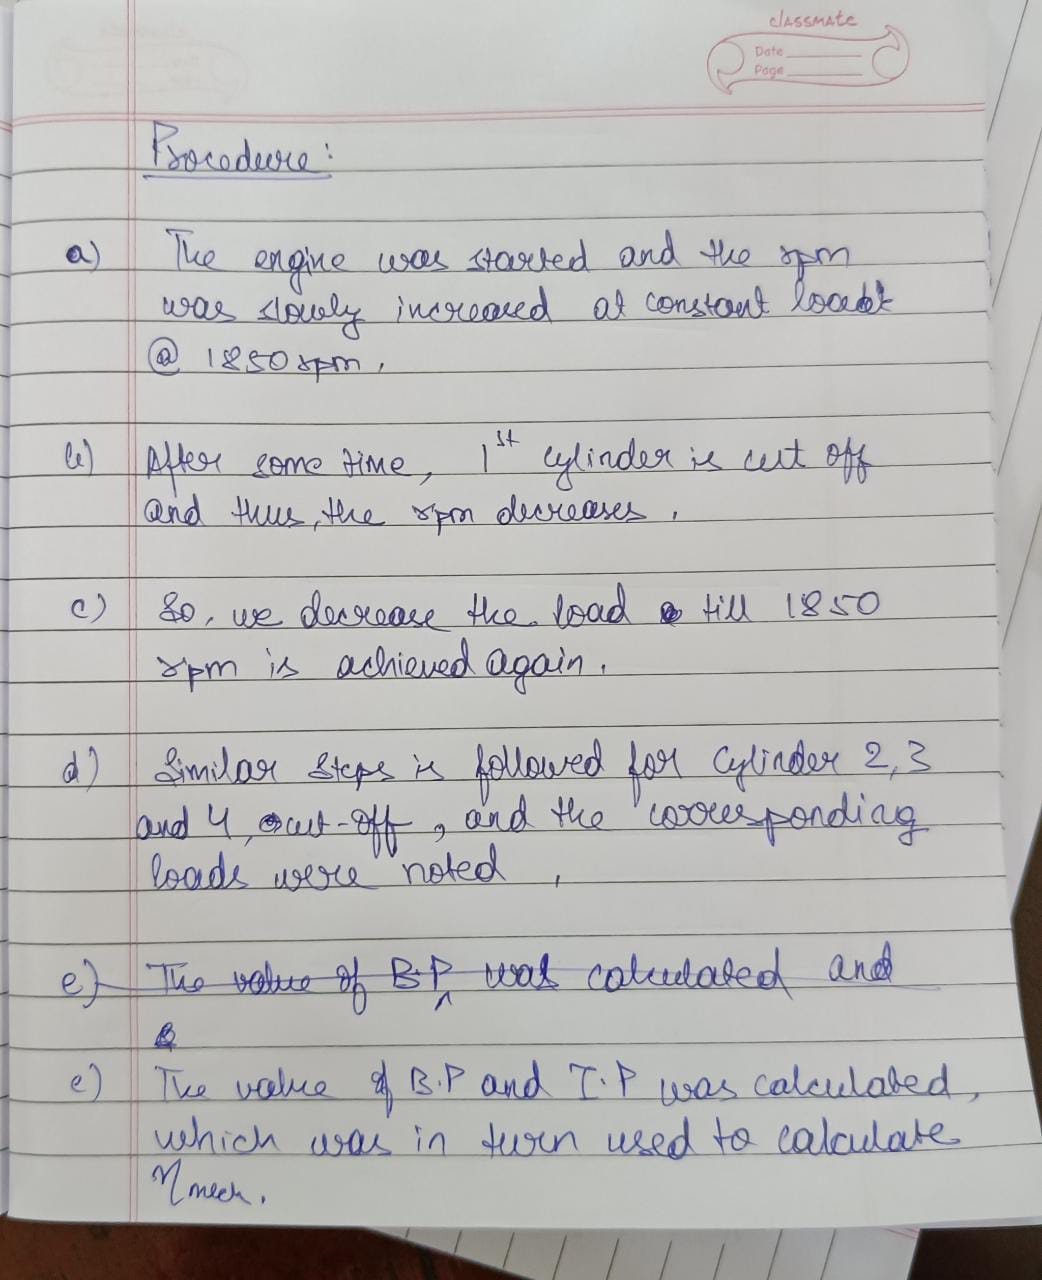 classmate
Date
Page
Procedure:
a) The engine was started and the rpm
was slowly increased at constant load
@ 1850 rpm.
b) After some time, 1st cylinder is cut off
and thus, the rpm decreases.
c) So, we decrease the load till 1850
rpm is achieved again.
d) Similar steps is followed for Cylinder 2,3
and 4, cut-off, and the corresponding
loads were noted,
e) The value of B.P was calculated and
e) The value of B.P and I.P was calculated,
which was in turn used to calculate
ηmech.